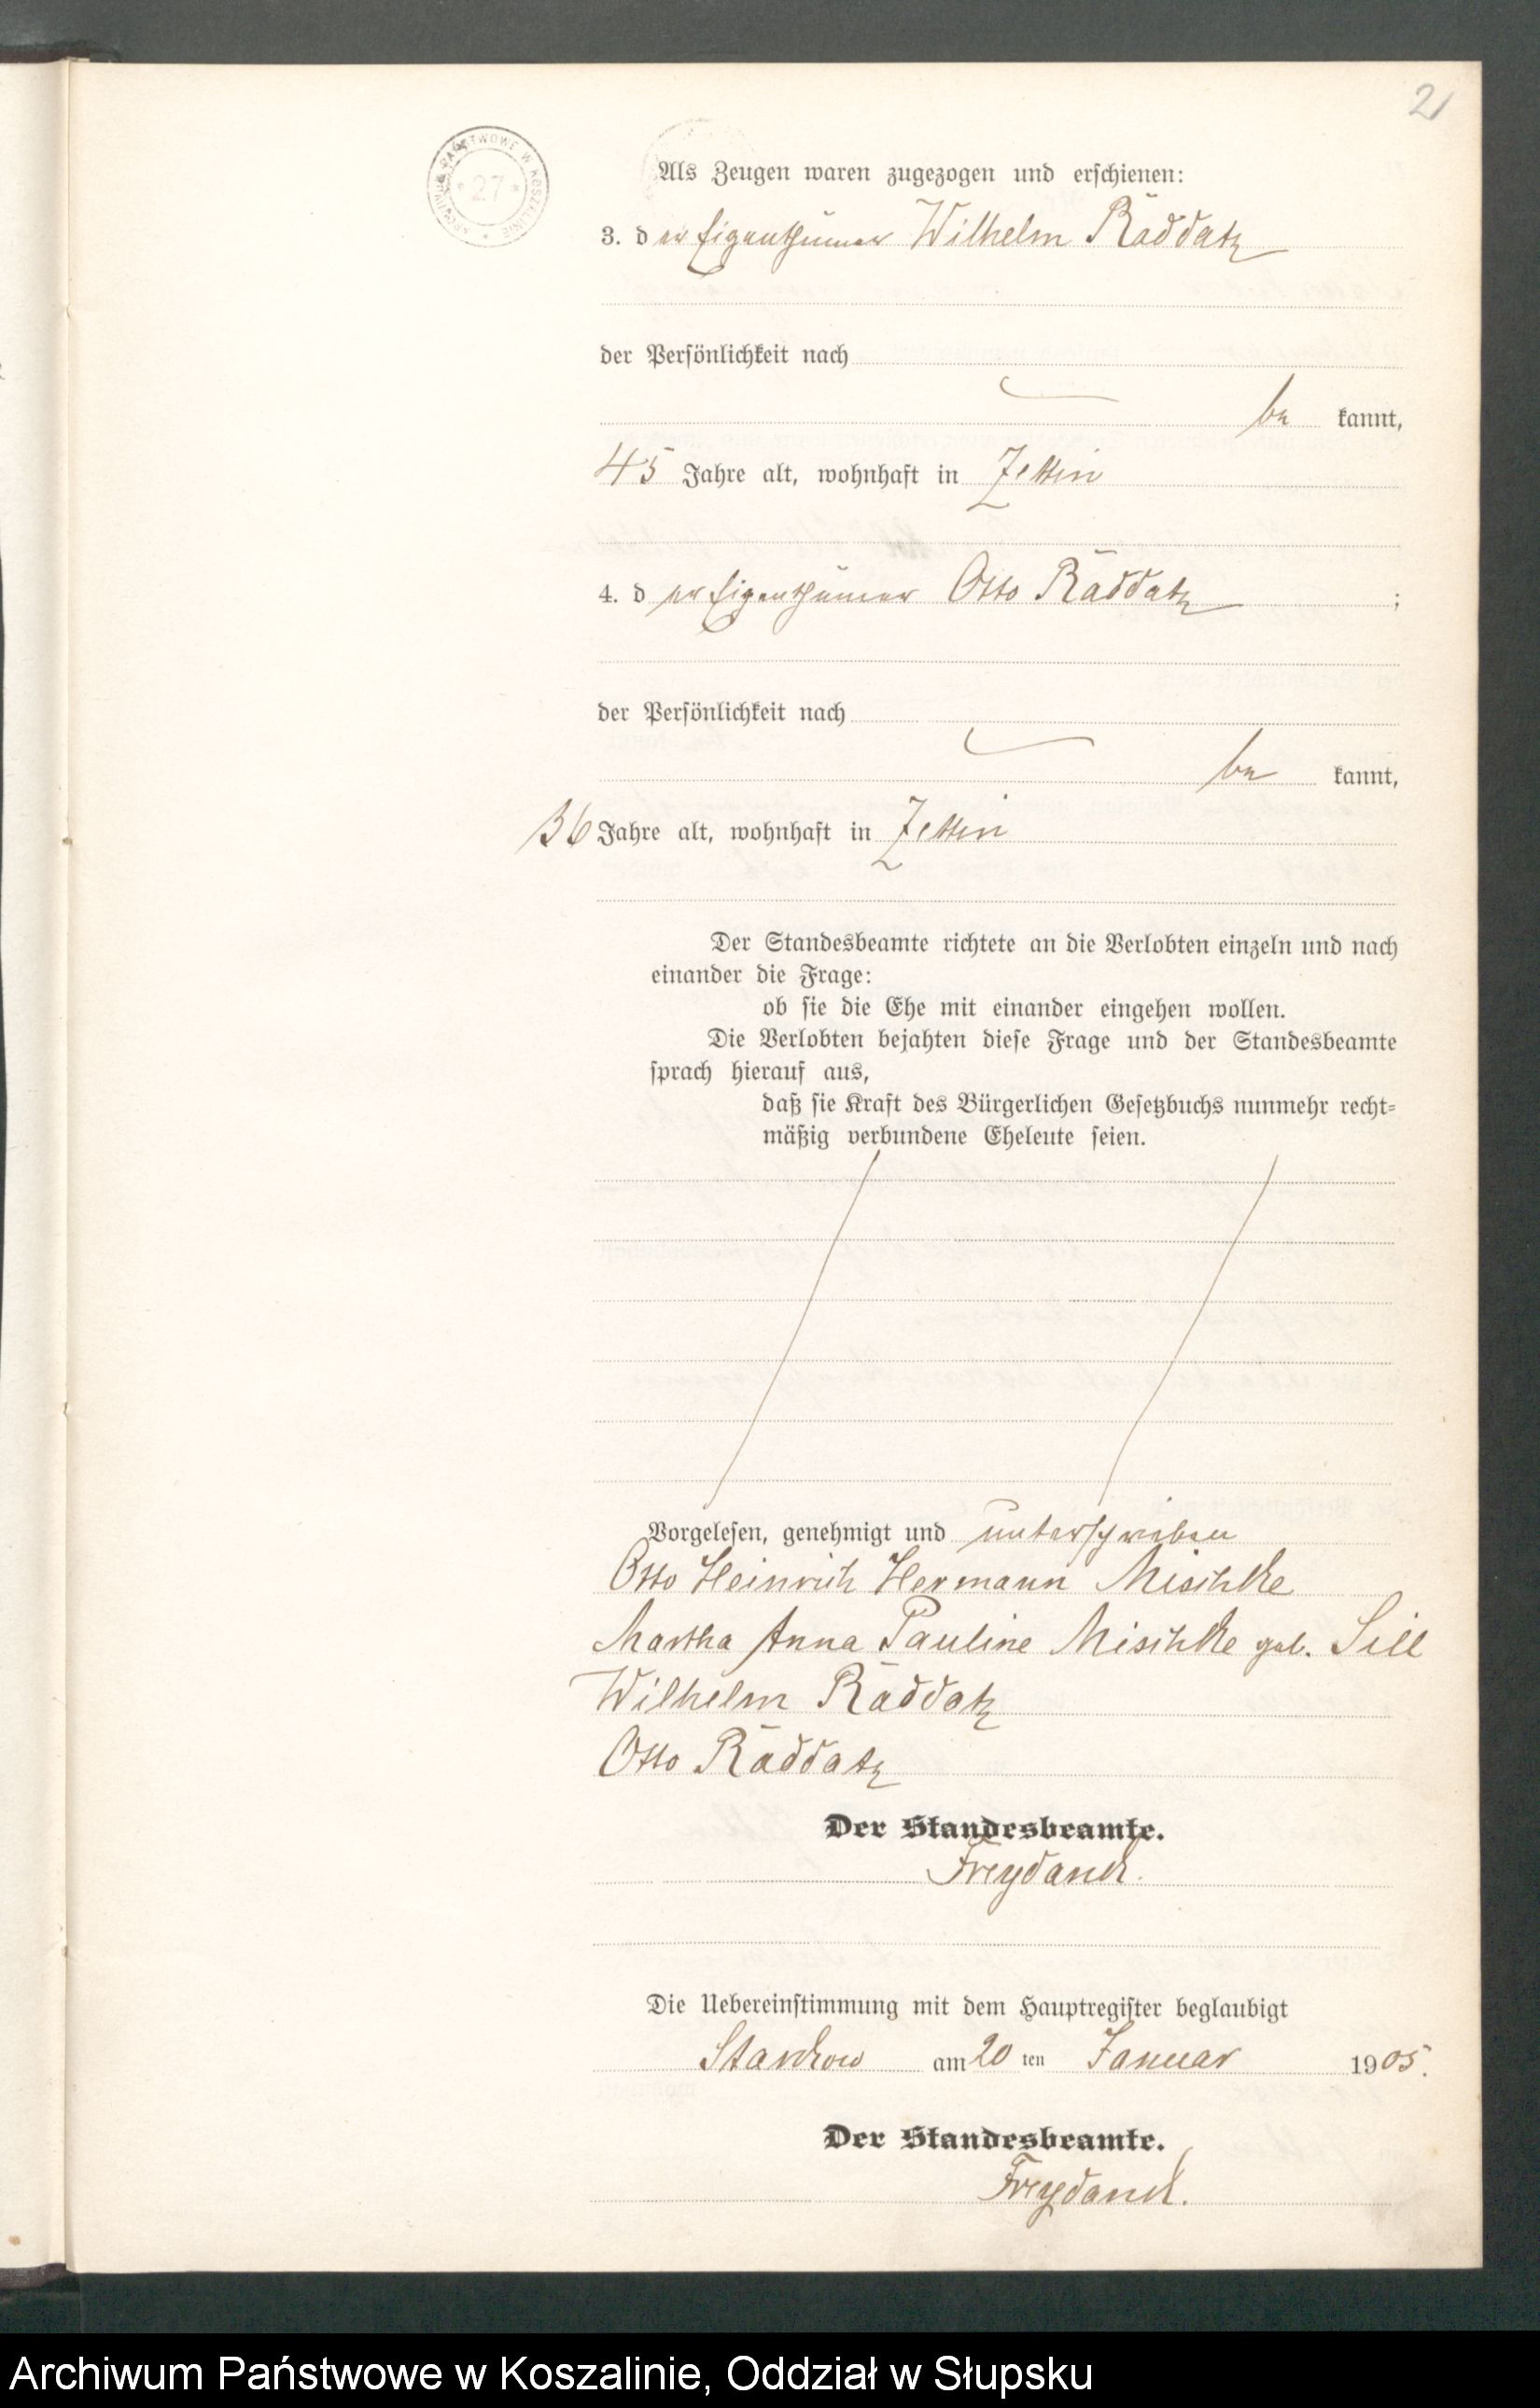 2
ARCHIWUM PAŃSTWOWE W KOSZALINIE
* 27 *
Als Zeugen waren zugezogen und erschienen:
3. der Eigenthümer Wilhelm Raddatz
der Persönlichkeit nach
be kannt,
45 Jahre alt, wohnhaft in Zettin
4. der Eigenthümer Otto Raddatz ;
der Persönlichkeit nach
be kannt,
36 Jahre alt, wohnhaft in Zettin
Der Standesbeamte richtete an die Verlobten einzeln und nach
einander die Frage:
ob sie die Ehe mit einander eingehen wollen.
Die Verlobten bejahten diese Frage und der Standesbeamte
sprach hierauf aus,
daß sie Kraft des Bürgerlichen Gesetzbuchs nunmehr recht-
mäßig verbundene Eheleute seien.
Vorgelesen, genehmigt und unterschrieben
Otto Heinrich Hermann Mischke
Martha Anna Pauline Mischke geb. Sill
Wilhelm Raddatz
Otto Raddatz
Der Standesbeamte.
Freydanck.
Die Uebereinstimmung mit dem Hauptregister beglaubigt
Starckow am 20 ten Januar 1905.
Der Standesbeamte.
Freydanck.
Archiwum Państwowe w Koszalinie, Oddział w Słupsku